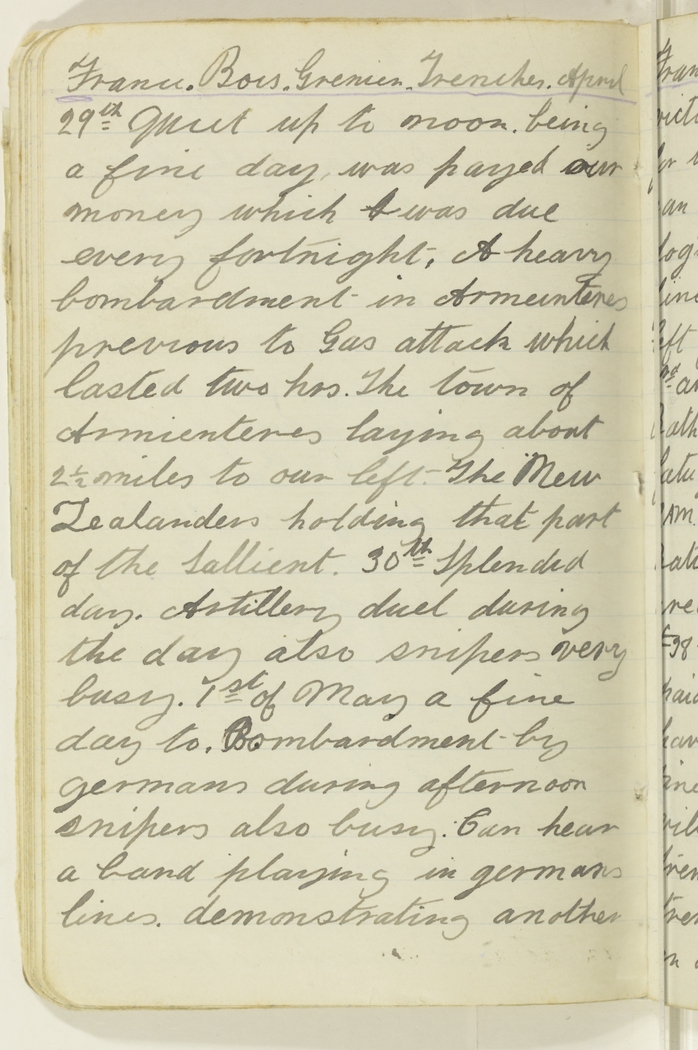 France. Bois. Grenier. Trenches. April
29th Quiet up to noon. being
a fine day, was payed our
money which was due
every fortnight. A heavy
bombardment in Armeinteres
previous to Gas attack which
lasted two hrs. The town of
Armienteres laying about
2½ miles to our left. The New
Zealanders holding that part
of the Sallient. 30th Splendid
day. Artillery duel during
the day also snipers very
busy. 1st of May a fine
day to. Bombardment by
germans during afternoon
snipers also busy. Can hear
a band playing in germans
lines. demonstrating another